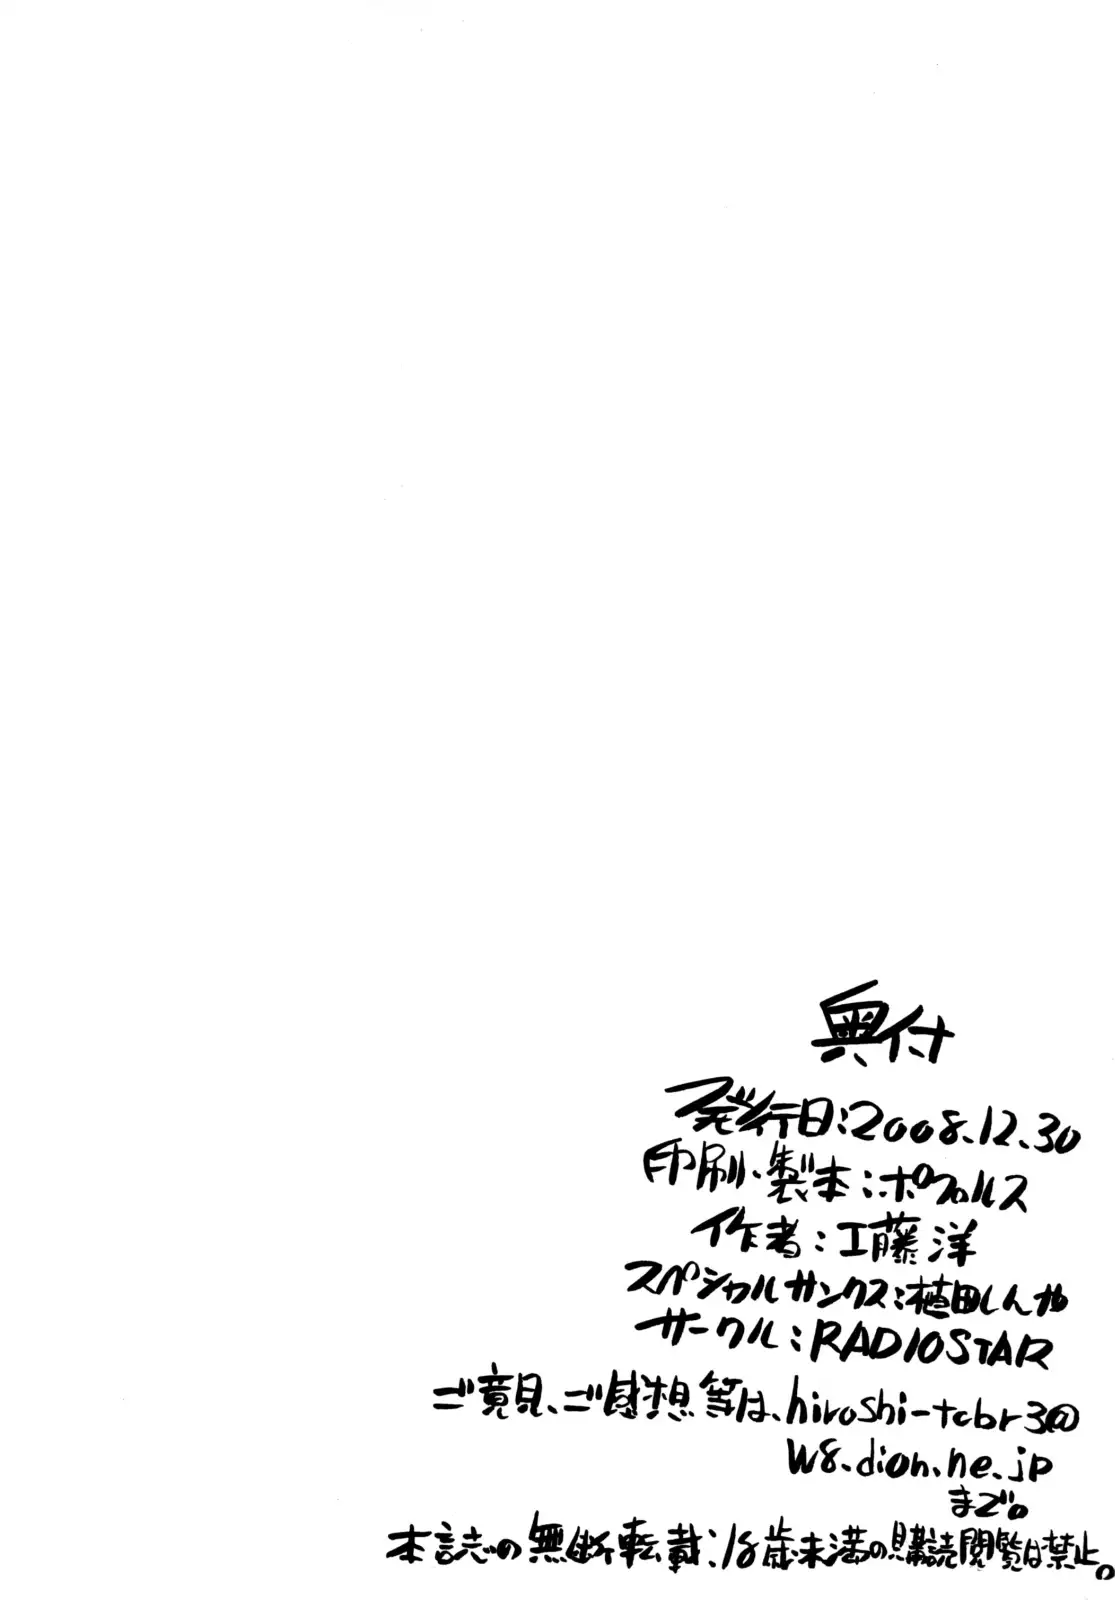 奥付
発行日:2008.12.30
印刷、製本:ポプルス
作者:工藤洋
スペシャルサンクス:植田しんや
サークル:RADIOSTAR
ご意見、ご感想等は、hiroshi-tcbr3@
w8.dion.ne.jp
まで。
本誌の無断転載;18歳未満の購読閲覧は禁止。